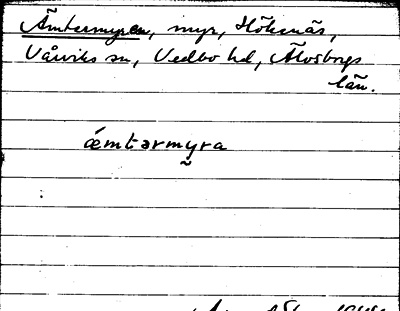 Ämtermyren, myr, Höksnäs,
Vårviks sn, Vedbo hd, Älvsborgs
län.
ǽmtərmyra